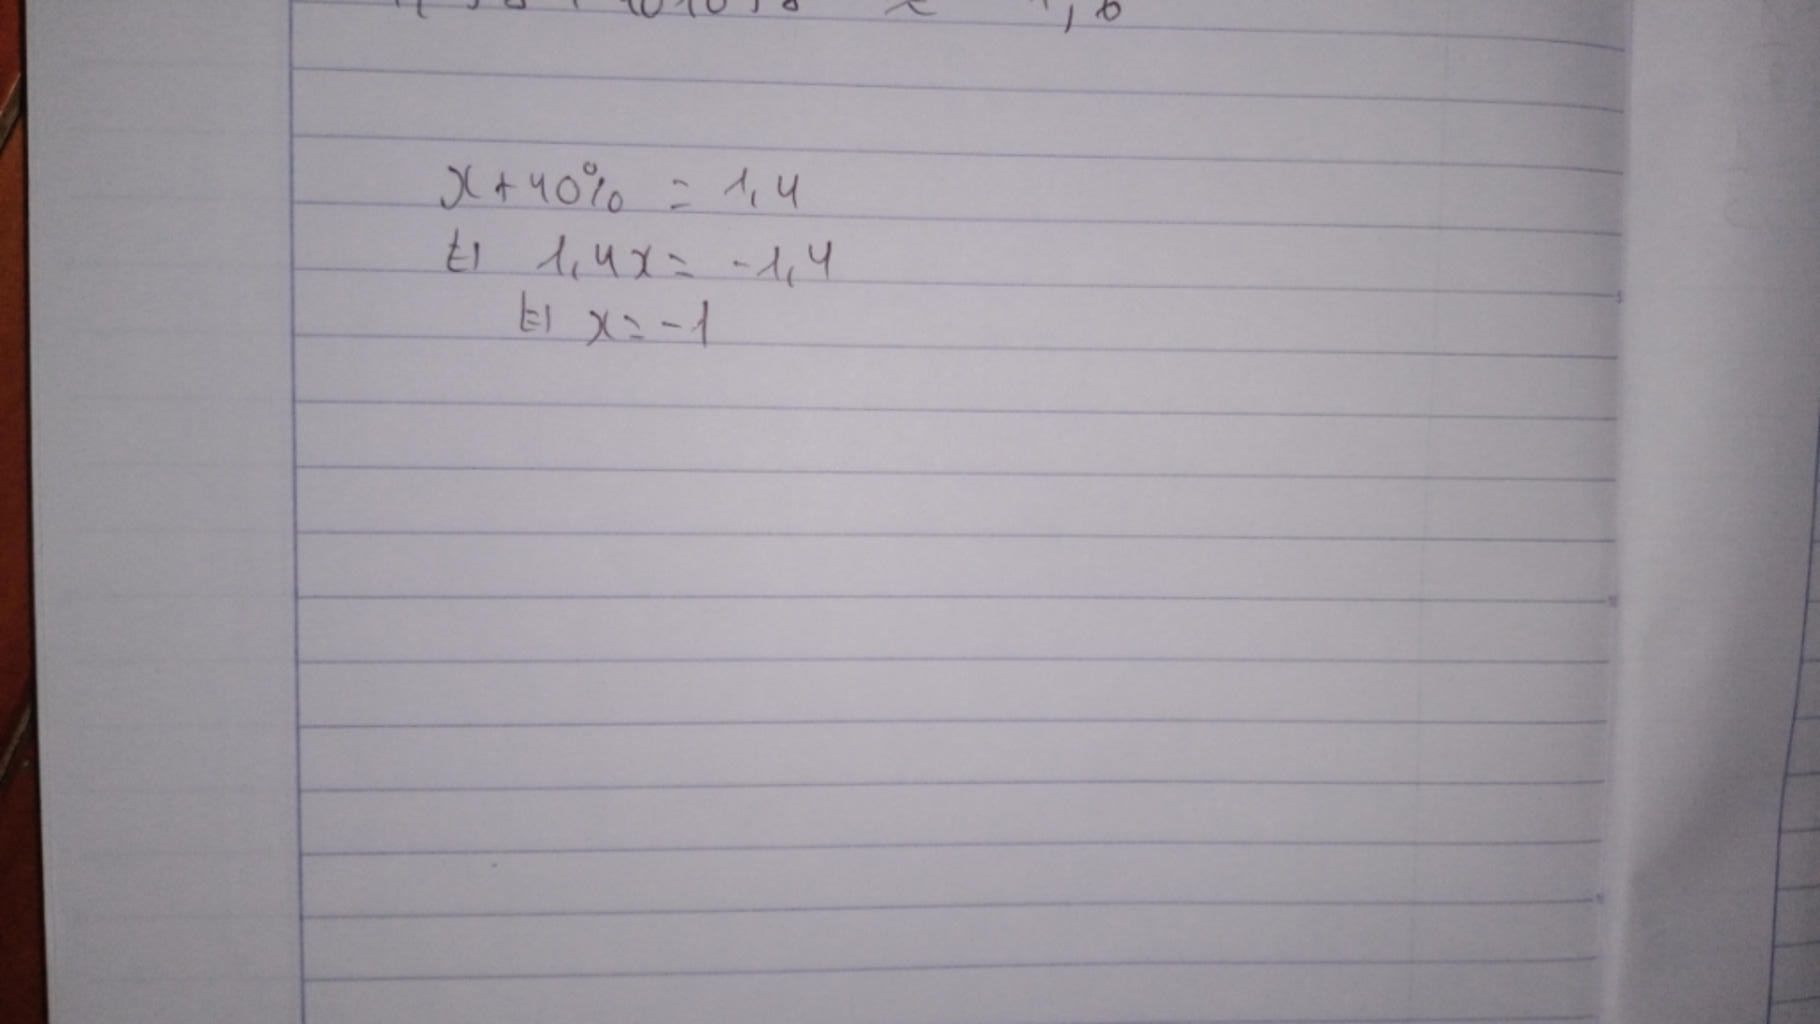 x + 40% = 1,4
⇔ 1,4x = -1,4
⇔ x = -1